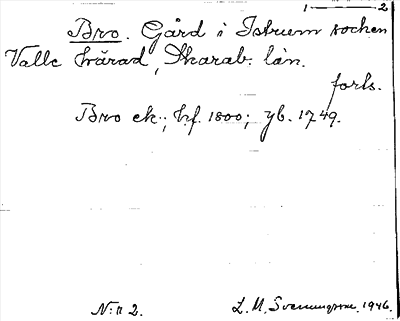 1 — 2
Bro. Gård i Istrum socken
Valle härad, Skarab. län.
forts.
Bro ek.; hf. 1800; yb. 1749.
N:r 2. L. M. Svennungsson. 1946.